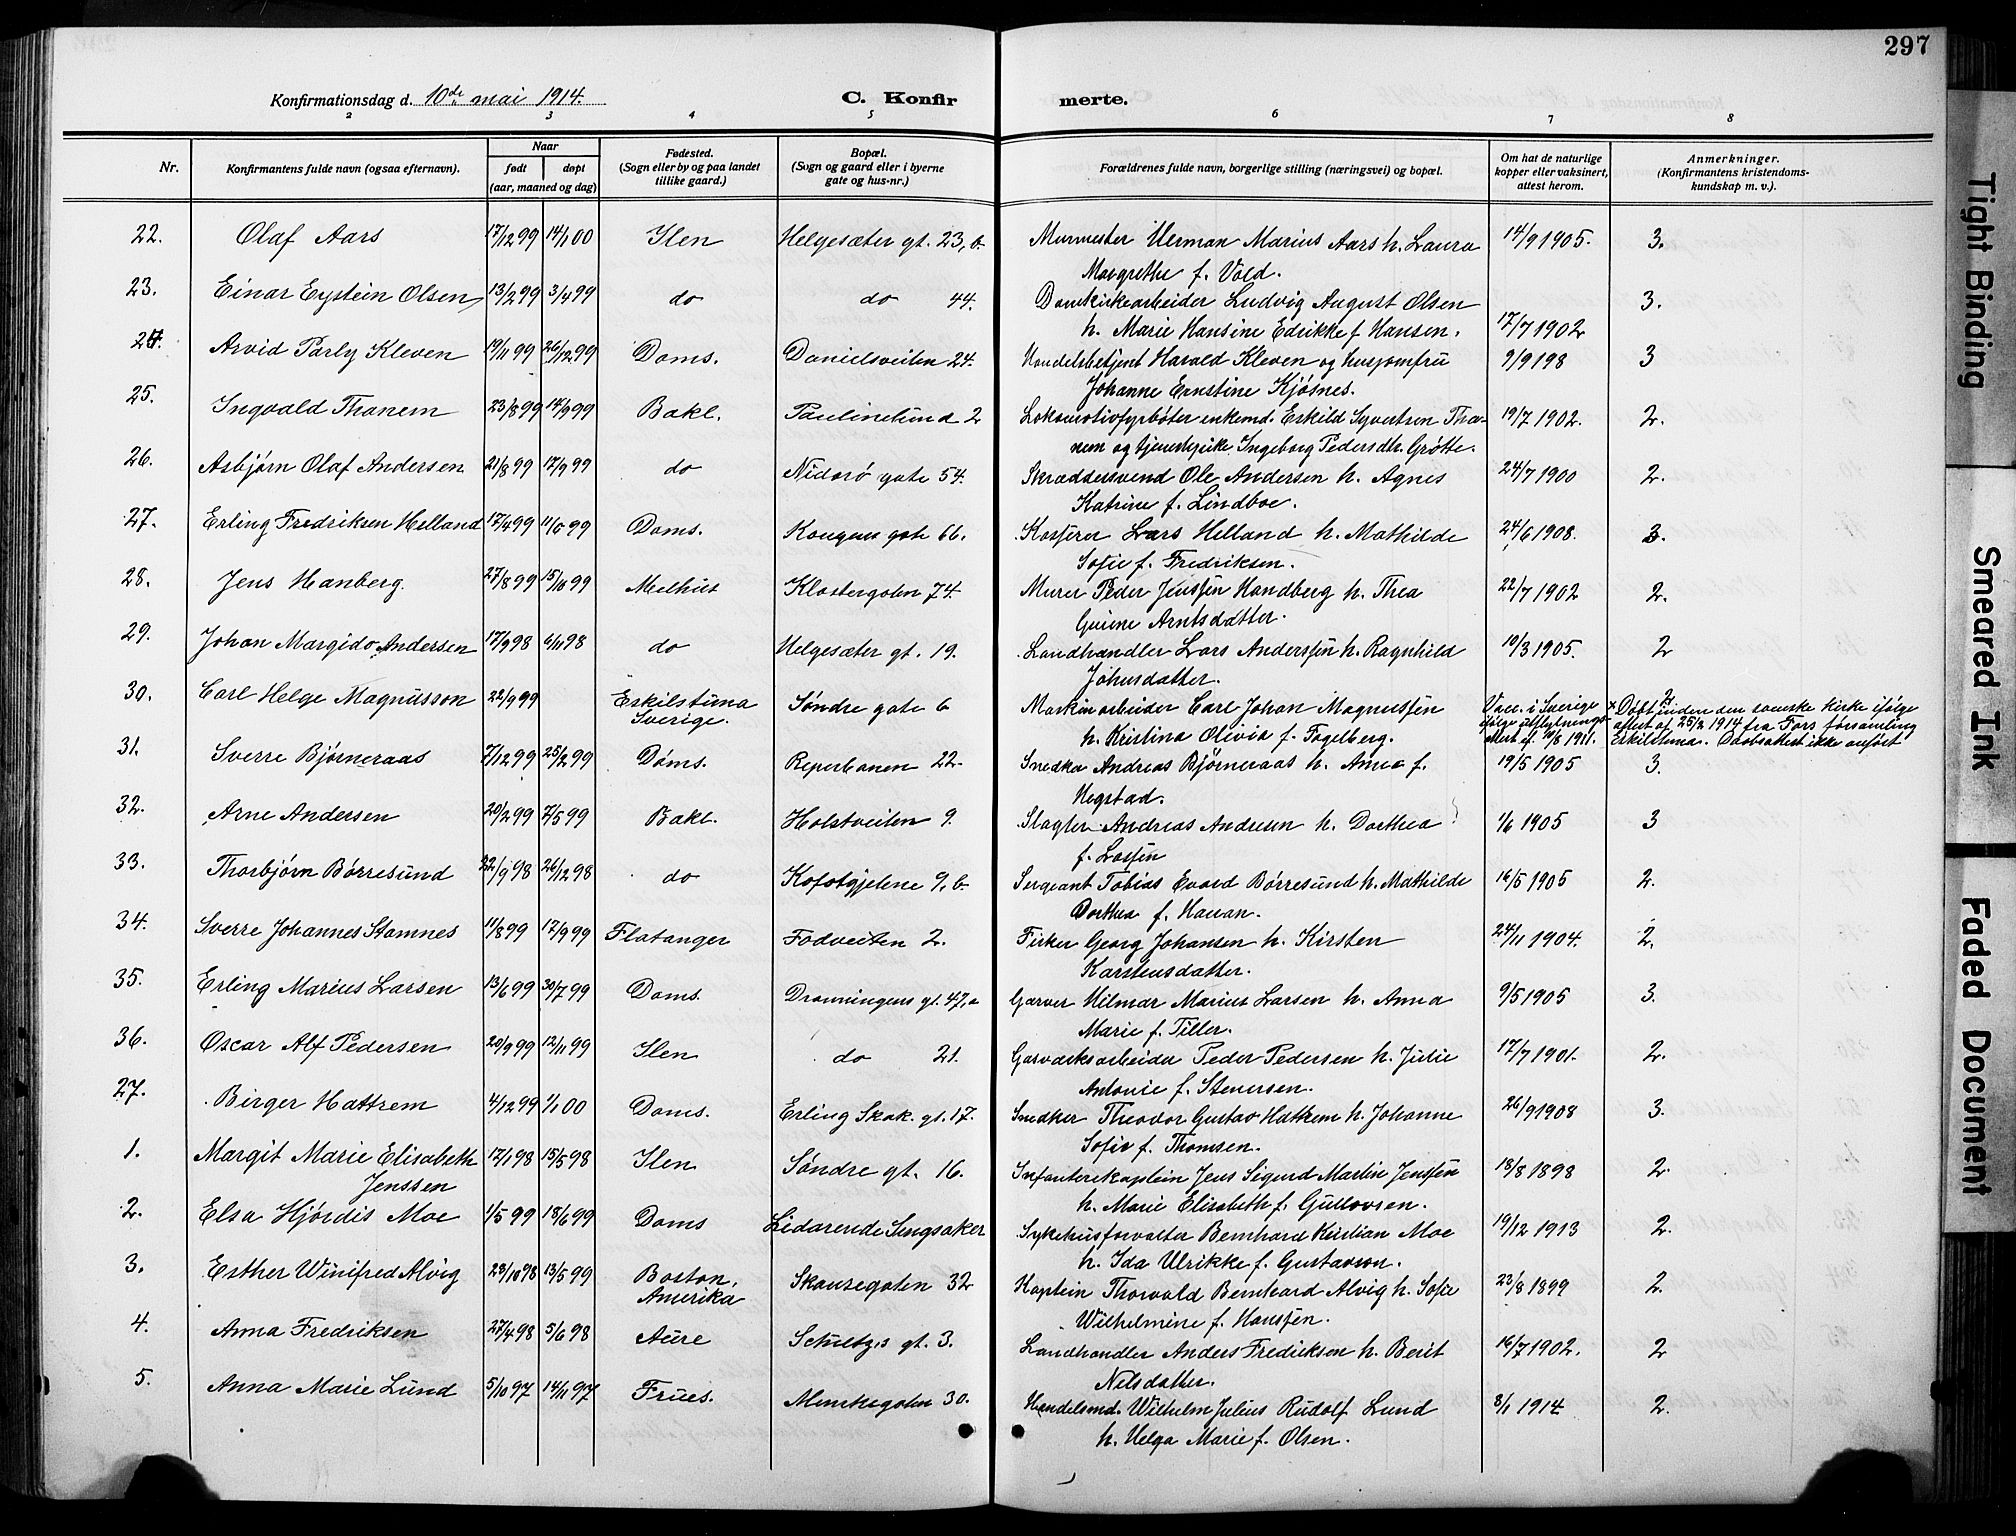 297
Konfirmationsdag d. 10de mai 1914.
C. Konfirmerte.
2 3 4 5 6 7 8
Nr. Konfirmantens fulde navn (ogsaa efternavn). Naar født døpt (aar, maaned og dag) Fødested. (Sogn eller by og paa landet tillike gaard.) Bopæl. (Sogn og gaard eller i byerne gate og hus-nr.) Forældrenes fulde navn, borgerlige stilling (næringsvei) og bopæl. Om hat de naturlige kopper eller vaksinert, attest herom. Anmerkninger. (Konfirmantens kristendomskundskap m. v.).
22. Olaf Aars 17/12 99 14/1 00 Ilen Helgesæter gt. 23, b. Murmester Herman Marius Aars h. Laura 14/9 1905. 3.
Margrethe f. Vold.
23. Einar Eystein Olsen 13/2 99 3/4 99 do do 44. Domkirkearbeider Ludvig August Olsen 3.
h. Marie Hansine Edrikke f. Hansen. 17/7 1902
24. Arvid Parly Kleven 19/11 99 26/12 99 Doms. Danielsveiten 24. Handelsbetjent Harald Kleven og husjomfru 9/9 198 3
Johanne Ernstine Kjøsnes.
25. Ingvald Thanem 23/8 99 14/9 99 Bakl. Paulinelund 2 Lokomotivfyrbøter enkemd. Eskild Syvertsen Tha-
19/7 1902. 2.
nem og tjenestepike Ingeborg Pedersdtr. Grøtte.
26. Asbjørn Olaf Andersen 21/8 99 17/9 99 do Nidarø gate 54. Skræddersvend Ole Andersen h. Agnes 24/7 1900 2.
Katrine f. Lindboe.
27. Erling Fredriksen Helland 17/4 99 11/6 99 Doms. Kongens gate 66. Kasserer Lars Helland h. Mathilde 24/6 1908. 3.
Sofie f. Fredriksen.
28. Jens Hanberg. 27/8 99 15/10 99 Melhus Klostergaten 74. Murer Peder Jenssen Handberg h. Thea 22/7 1902 2.
Gurine Arntsdatter.
29. Johan Margido Andersen 17/9 98 6/11 98 do Helgesæter gt. 19. Landhandler Lars Anderssen h. Ragnhild 10/3 1905. 2
Johnsdatter.
30. Carl Helge Magnusson 22/9 99 Eskilstuna Sverige. Søndre gate 6 Maskinarbeider Carl Johan Magnussen Vacc. i Sverige 2
h. Kristina Olivia f. Fagelberg. ifølge utflytnings attest af 10/8 1911. x Døbt inden den svenske kirke ifølge attest af 25/2 1914 fra Fors førsamling Eskilstuna. Daabsattest ikke anført
31. Sverre Bjørneraas 7/12 99 25/2 99 Doms. Reperbanen 22. Snedker Andreas Bjørneraas h. Anna f. 19/5 1905 3.
Hegstad.
32. Arne Andersen 20/2 99 7/5 99 Bakl. Holstveiten 9. Slagter Andreas Andresen h. Dorthea 1/6 1905 3
f. Lassen
33. Thorbjørn Børresund 22/9 98 26/12 98 do Kofotgjelene 9, b. Sergeant Tobias Evard Børresund h. Mathilde 16/5 1905 2.
Dorthea f. Hauan.
34. Sverre Johannes Stamnes 11/8 99 17/9 99 Flatanger Fodveiten 2. Fisker Georg Johansen h. Kirsten 24/11 1904. 2.
Karstensdatter.
35. Erling Marius Larsen 13/6 99 30/7 99 Doms. Dronningens gt. 47, a Garver Hilmar Marius Larsen h. Anna 9/5 1905 3.
Marie f. Tiller.
36. Oscar Alf Pedersen 20/9 99 12/11 99 Ilen do 21. Gasværksarbeider Peder Pedersen h. Julie 17/7 1901. 2.
Antonie f. Stenersen.
27. Birger Hattrem 4/12 99 1/1 00 Doms. Erling Skak. gt. 17. Snedker Theodor Gustav Hattrem h. Johanne 26/9 1908 3.
Sofie f. Thomsen.
1. Margit Marie Elisabeth Jenssen 17/1 98 15/5 98 Ilen Søndre gt. 16. Infanterikaptein Jens Sigurd Martin Jenssen 18/8 1898 2.
h. Marie Elisabeth f. Gullovsen.
2. Elsa Hjørdis Moe 1/5 99 18/6 99 Doms Lidarende Singsaker Sykehusforvalter Bernhard Kristian Moe 19/12 1913 2.
h. Ida Ulrikke f. Gustavson.
3. Esther Winifred Alvig 23/10 98 13/5 99 Boston, Amerika Skansegaten 32 Kaptein Thorvald Bernhard Alvig h. Sofie 23/8 1899 2.
Wilhelmine f. Hanssen.
4. Anna Fredriksen 27/4 98 5/6 98 Aure Schultzes gt. 3. Landhandler Anders Fredriksen h. Berit 16/7 1902. 2
Nilsdatter.
5. Anna Marie Lund 5/10 97 14/11 97 Frues. Munkegaten 30. Handelsmd. Wilhelm Julius Rudolf Lund 8/1 1914 2.
h. Helga Marie f. Olsen.
Tight Binding
Smeared Ink
Faded Document